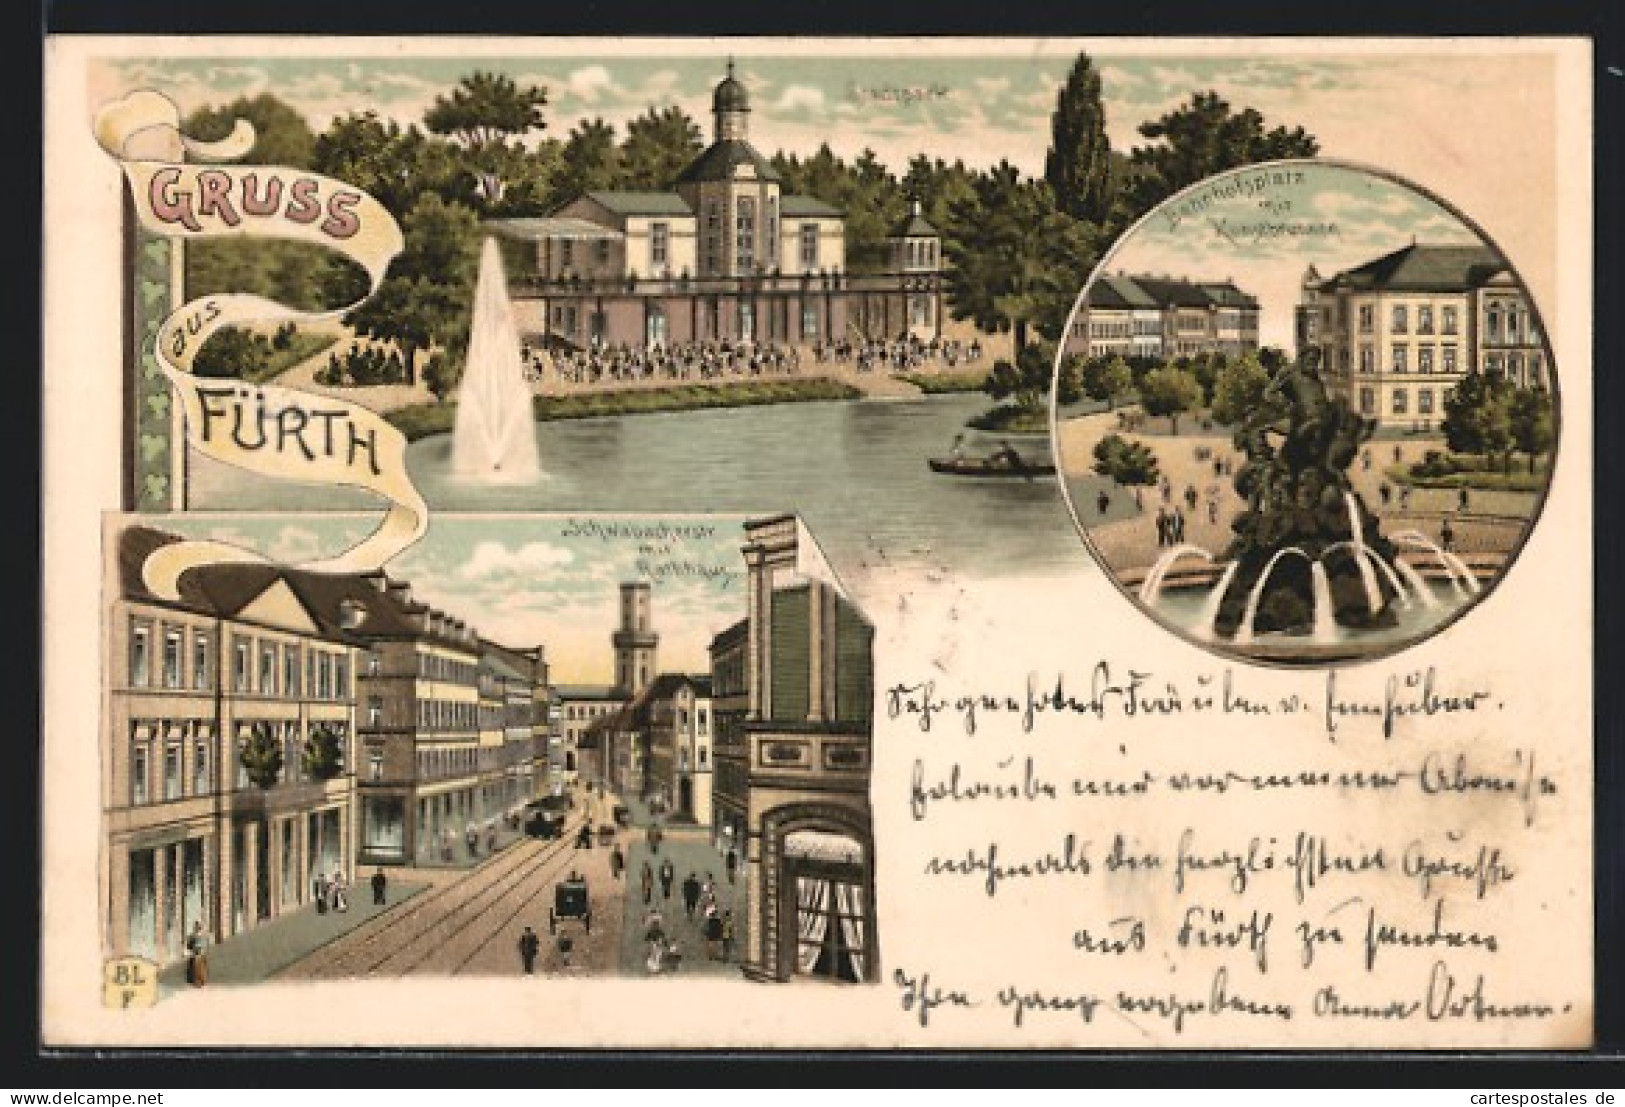 GRUSS
aus
FÜRTH
Stadtpark
Bahnhofsplatz
mit
Kunstbrunnen
Schwabacherstr
mit
Rathhaus
BL
F
Sehr geehrtes Fräulen v.
Erlaube mir vor meiner Abreise
nochmals die herzlichsten Grüsse
aus Fürth zu senden
Ihre ganz ergebene Anna Ortner.
www.cartespostales.de